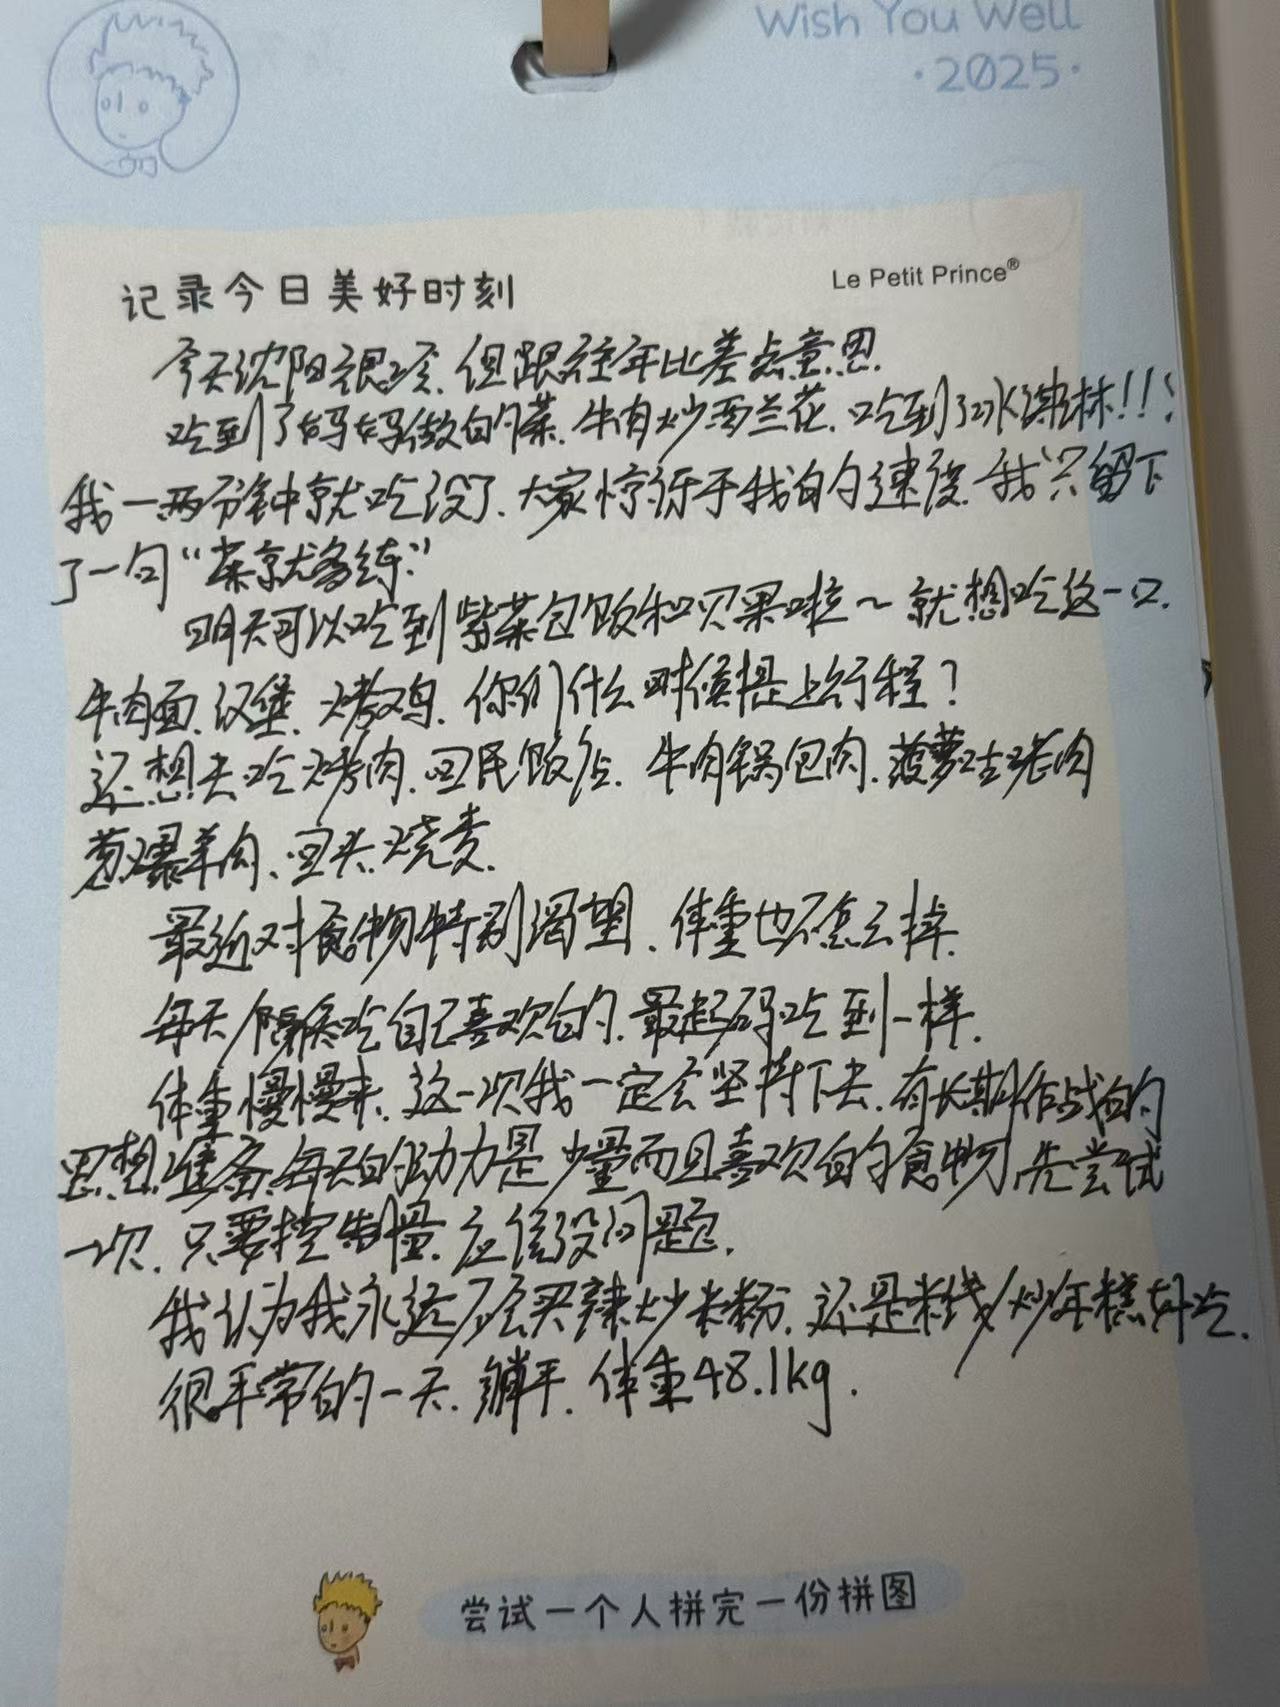 Wish You Well
·2025·
记录今日美好时刻
Le Petit Prince®
今天沈阳很冷,但跟往年比差点意思.
吃到了妈妈做的菜.牛肉炒西兰花.吃到了冰淇淋!!!
我一两分钟就吃没了.大家惊讶于我的速度.我只留下
了一句“菜就多练.”
明天可以吃到紫菜包饭和贝果啦~就想吃这一口.
牛肉面.汉堡.烤鸡.你们什么时候提上行程?
还想去吃烤肉.回民饭店.牛肉锅包肉.菠萝咕咾肉
葱爆羊肉、回头.烧麦.
最近对食物特别渴望、体重也不怎么掉.
每天/隔天吃自己喜欢的.最起码吃到一样.
体重慢慢来.这一次我一定会坚持下去.有长期作战的
思想准备.每天的动力是少量而且喜欢的食物.先尝试
一次.只要控制量.应该没问题.
我认为我永远不会买辣炒米粉.还是米线/炒年糕好吃.
很平常的一天.躺平.体重48.1kg.
尝试一个人拼完一份拼图